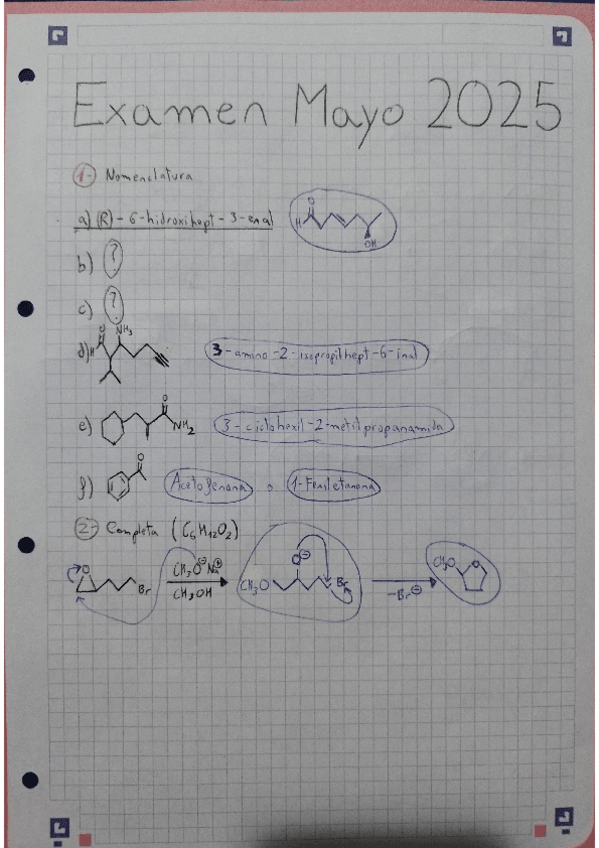 Examen Mayo 2025
1- Nomenclatura
a) (R)-6-hidroxihept-3-enal
H O OH
b) ?
c) ?
d) H O NH₃ 3-amino-2-isopropilhept-6-inal
e) O NH₂ 3-ciclohexil-2-metilpropanamida
f) O Acetofenona o 1-Feniletanona
2- Completa (C₆H₁₂O₂)
O Br CH₃O⊖ Na⊕ CH₃OH CH₃O O⊖ Br -Br⊖ CH₃O O